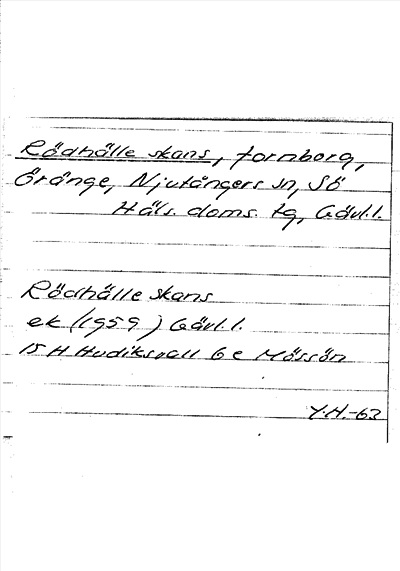 Rödhälle skans, fornborg,
Öränge, Njutångers sn, Sö
Häls. doms. tg, Gävl. l.
Rödhälle skans
ek (1959) Gävl. l.
15 H Hudiksvall 6 e Mössön
Y.H.-63